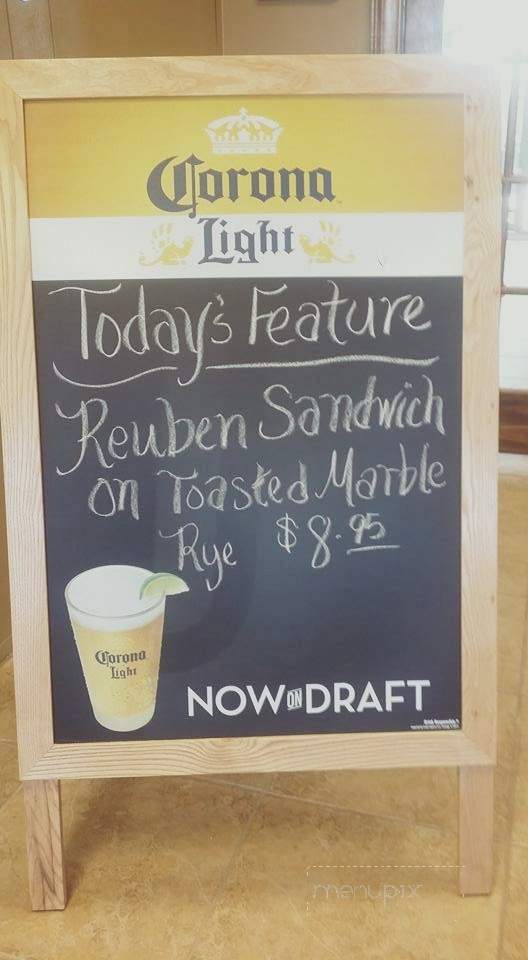 Corona
Light
Today's Feature
Reuben Sandwich
on Toasted Marble
Rye $8.95
Corona
Light
NOW ON DRAFT
menupix